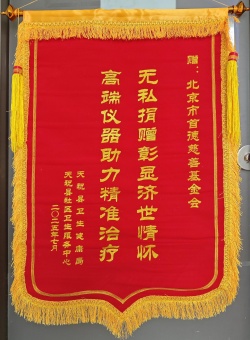 赠：北京市首德慈善基金会
无私捐赠彰显济世情怀
高端仪器助力精准治疗
天祝县卫生健康局
天祝县社区卫生服务中心
二〇二五年七月